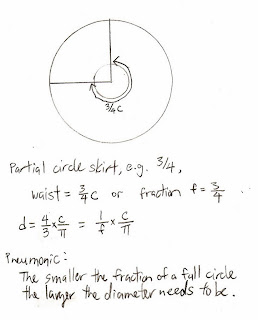 3/4 C
Partial circle skirt, e.g. 3/4,
waist = 3/4 C or fraction f = 3/4
d = 4/3 × C/π = 1/f × C/π
Pneumonic:
The smaller the fraction of a full circle
the larger the diameter needs to be.